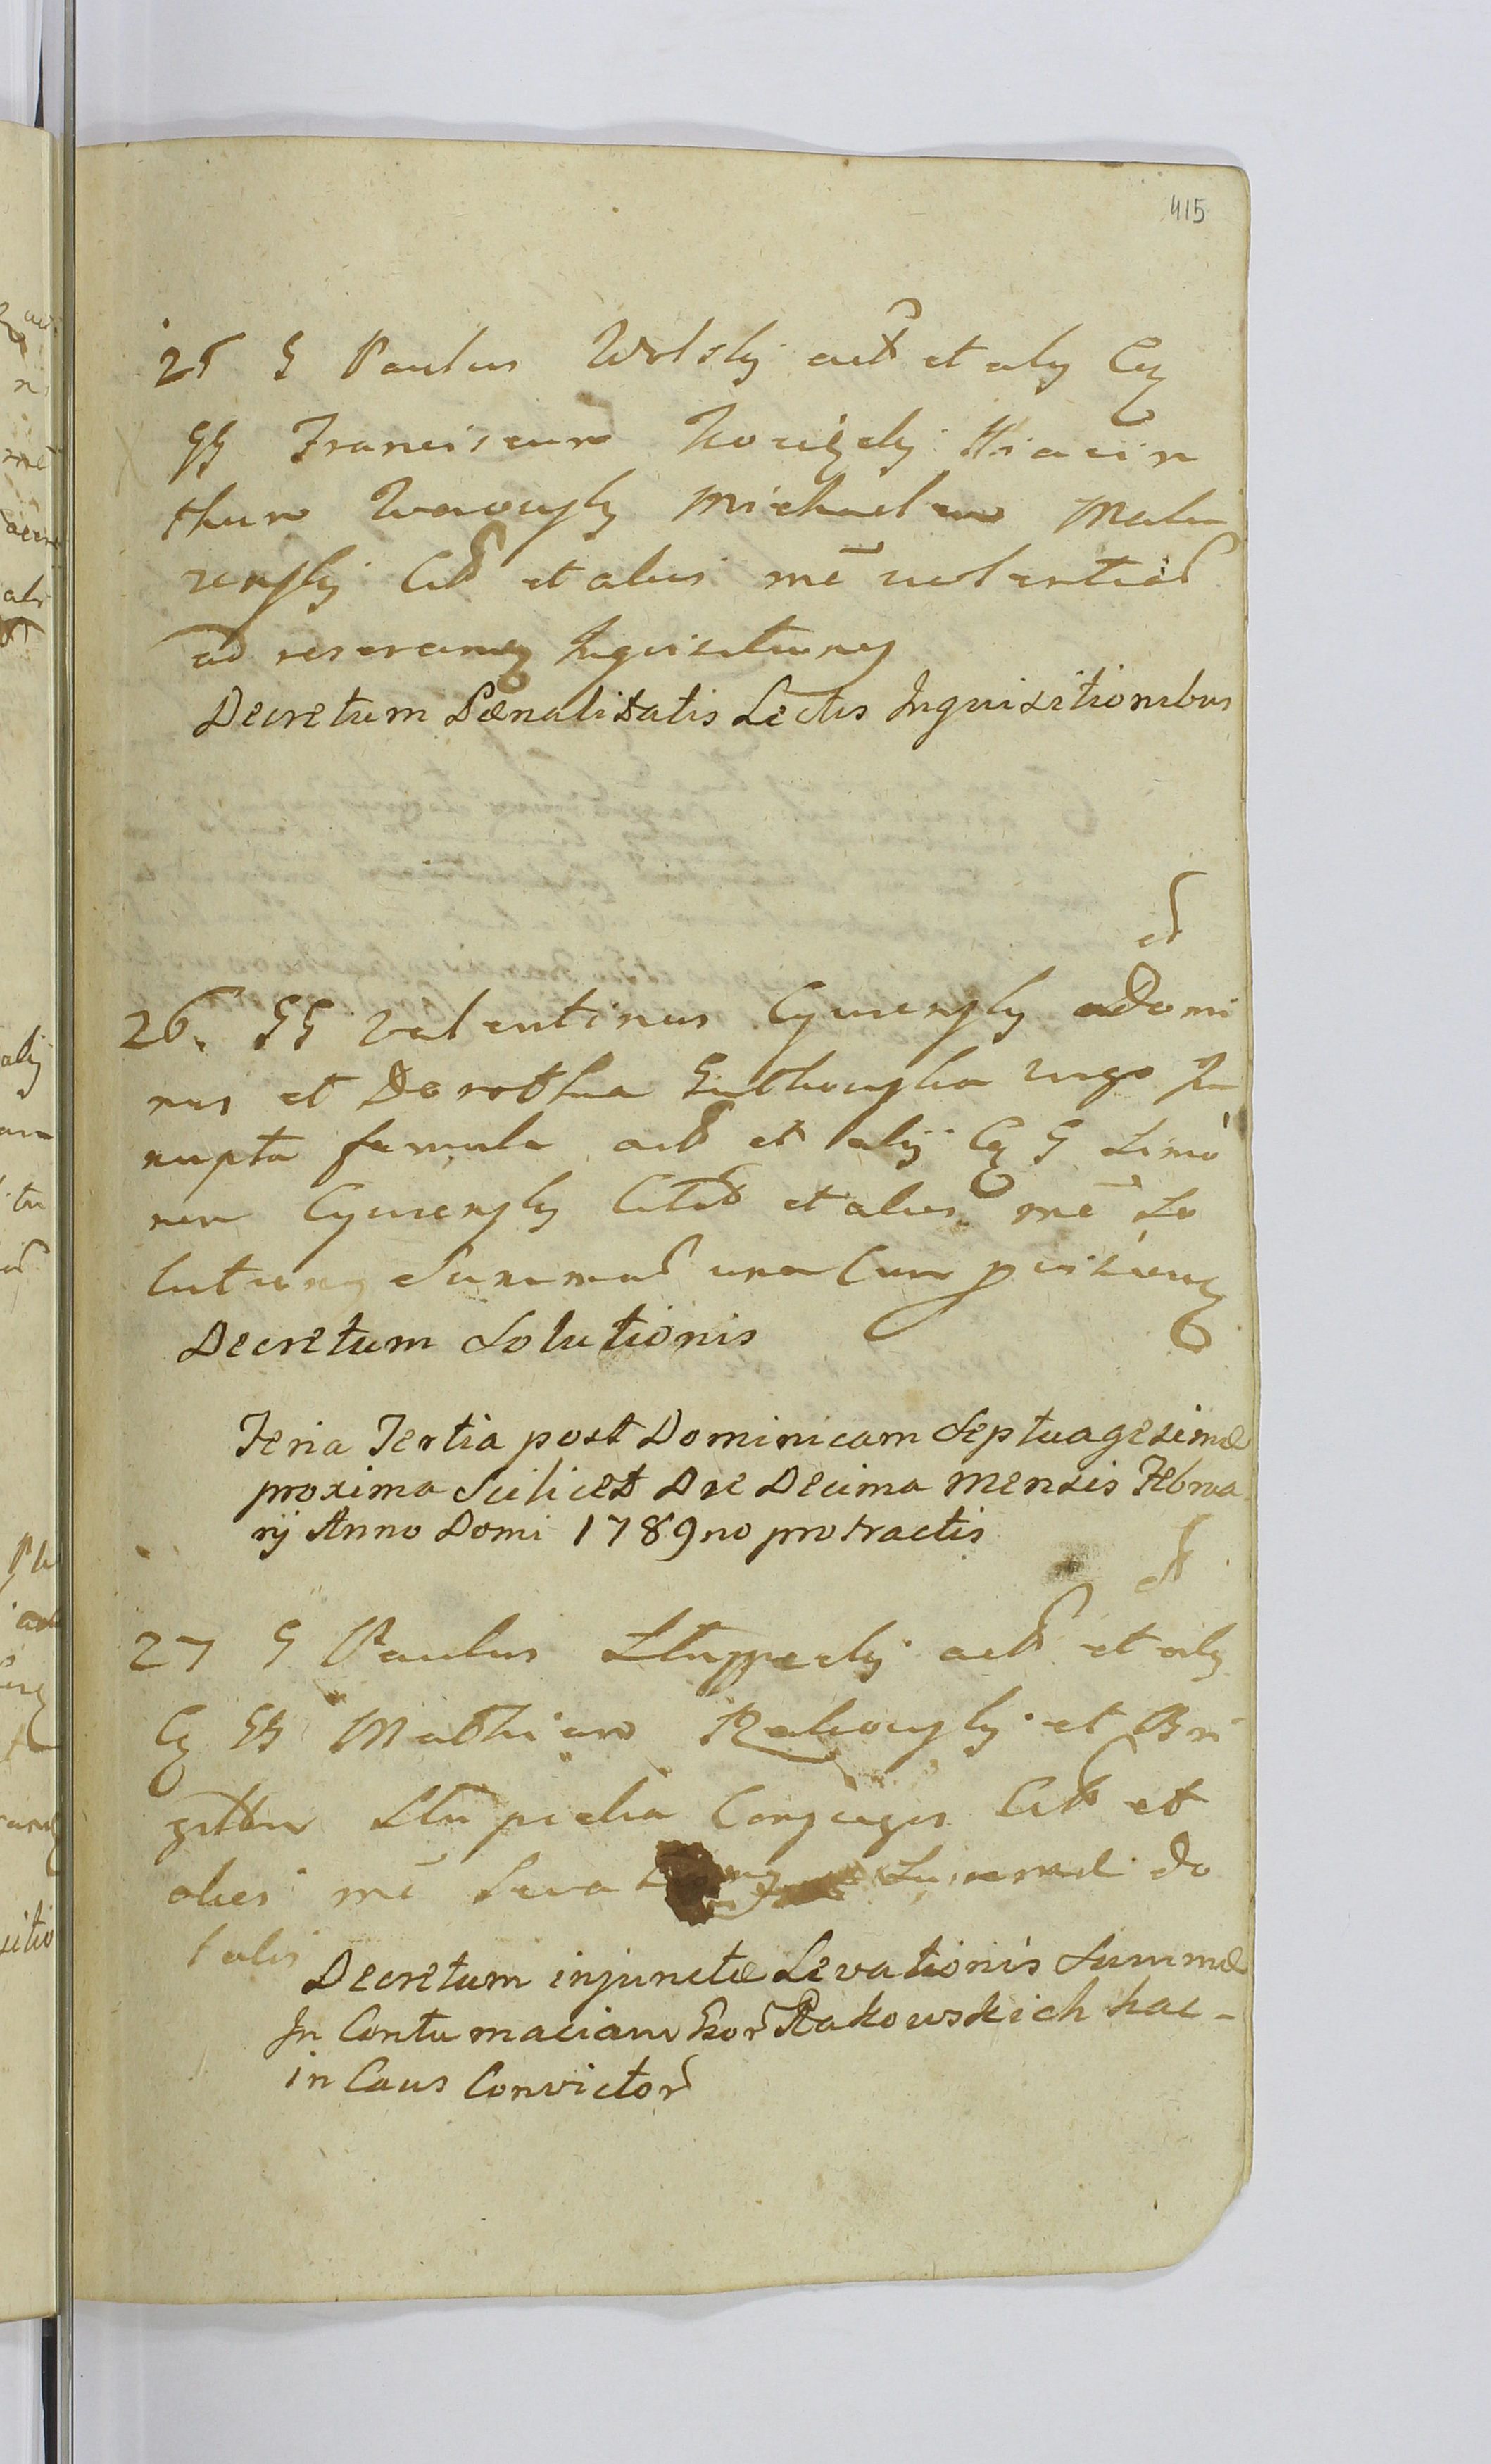 415
25 G Paulus Wolsky act et aly Cq
GG Franciscum Hiacin
thum Michaelem
Cit et alios mē violentias
ad reserandas Inquisitiones
Decretum Pœnalitatis Lectis Inquisitionibus
ct
26. GG Valentinus Cywensky a Domi
nus et Dorothea Gutkowska Virgo In
nupta famula act et alij Cq G Simo
nem Cywensky Citat et alios mē So
lutiones Summas una Cum
Decretum Solutionis
Feria Tertia post Dominicam Septuagesimæ
proxima Scilicet Die Decima Mensis Februa
rij Anno Domi 1789no protractis
ct
27 G Paulus Stuppecky act et aly
Cq GG Mathiam Rakowsky et Bri
gittam Stupecka Conjuges Cit et
alios mē Levationes Summæ do
talis
Decretum injunctæ Levationis Summæ
In Contumaciam Ggor Rakowskich hac-
in Caus Convictor